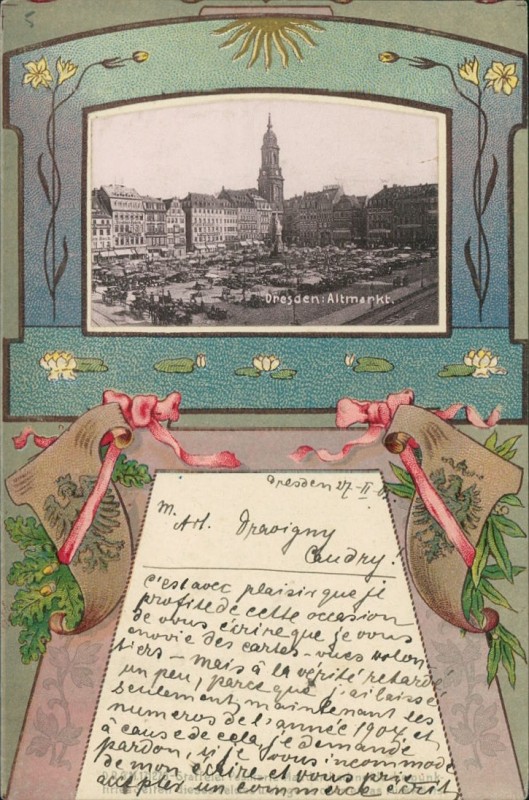 5
Dresden: Altmarkt.
Dresden 27-II-
M.
Ad. Dravigny
Caudry!
c'est avec plaisir que je
profite de cette occasion
de vous écrire que je vous
envoie des cartes-vues volon
tiers – mais à la vérité retardé
un peu, parce que j'ai laissé
seulement maintenant les
numeros de l'année 1904 et
à cause de cela, je demande
pardon, si je vous incommode
de mon écrire et vous prie
par un commerce écrit